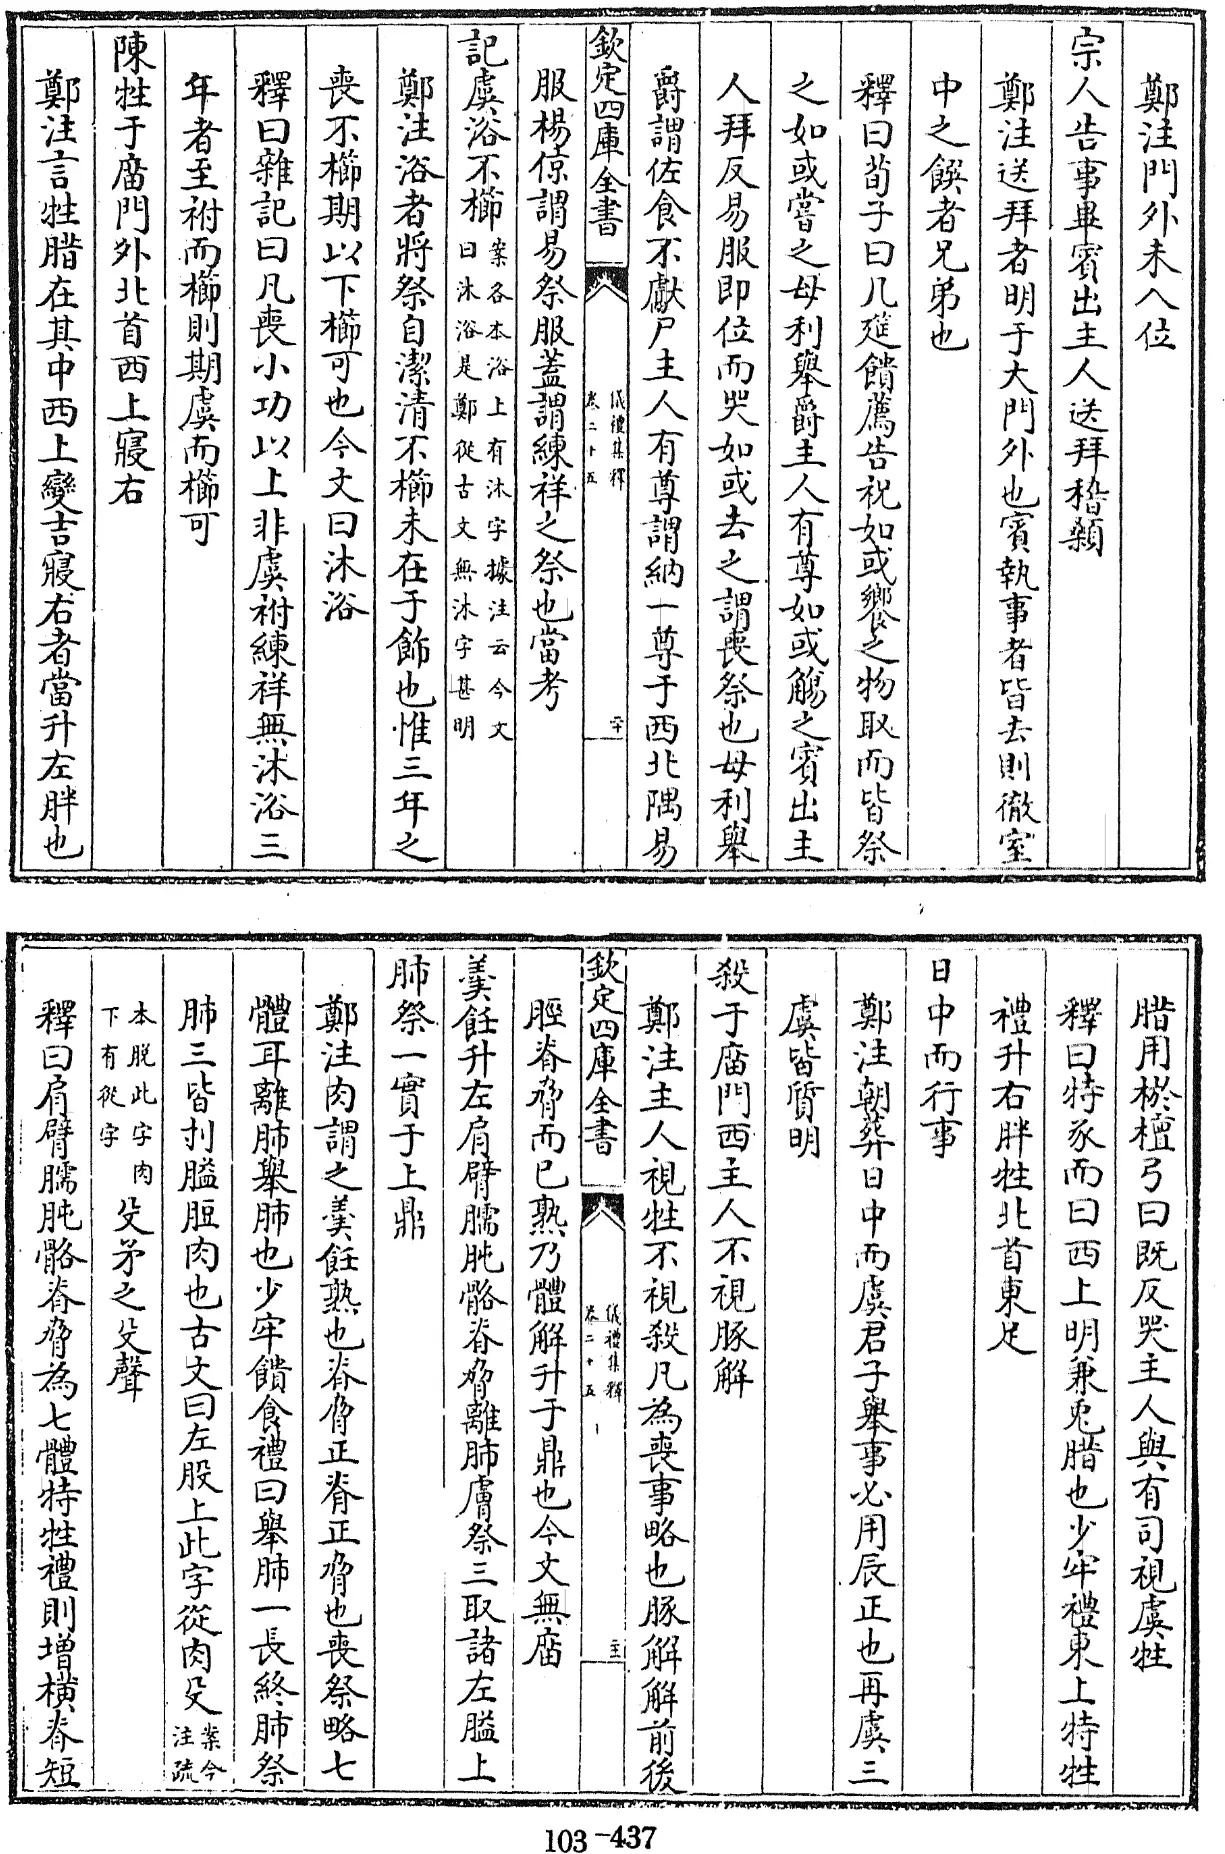 鄭注門外未入位
宗人告事畢賓出主人送拜稽顙
鄭注送拜者明于大門外也賓執事者皆去則徹室
中之饌者兄弟也
釋曰荀子曰几筵饋薦告祝如或饗之物取而皆祭
之如或嘗之毋利舉爵主人有尊如或觴之賓出主
人拜反易服即位而哭如或去之謂喪祭也毋利舉
爵謂佐食不獻尸主人有尊謂納一尊于西北隅易
欽定四庫全書
儀禮集釋
卷二十五
二十
服楊倞謂易祭服蓋謂練祥之祭也當考
記虞浴不櫛案各本浴上有沐字據注云今文
曰沐浴是鄭從古文無沐字甚明
鄭注浴者將祭自潔清不櫛未在于飾也惟三年之
喪不櫛期以下櫛可也今文曰沐浴
釋曰雜記曰凡喪小功以上非虞祔練祥無沐浴三
年者至祔而櫛則期虞而櫛可
陳牲于廟門外北首西上寢右
鄭注言牲腊在其中西上變吉寢右者當升左胖也
腊用棜檀弓曰既反哭主人與有司視虞牲
釋曰特豕而曰西上明兼兎腊也少牢禮東上特牲
禮升右胖牲北首東足
日中而行事
鄭注朝葬日中而虞君子舉事必用辰正也再虞三
虞皆質明
殺于廟門西主人不視豚解
鄭注主人視牲不視殺凡為喪事略也豚解解前後
欽定四庫全書
儀禮集釋
卷二十五
脛脊脅而已熟乃體解升于鼎也今文無廟
羹飪升左肩臂臑肫骼脊脅離肺膚祭三取諸左膉上
肺祭一實于上鼎
鄭注肉謂之羹飪熟也脊脅正脊正脅也喪祭略七
體耳離肺舉肺也少牢饋食禮曰舉肺一長終肺祭
肺三皆刌膉脰肉也古文曰左股上此字從肉殳案今
注疏
本脫此字肉
下有從字殳矛之殳聲
釋曰肩臂臑肫骼脊脅為七體特牲禮則增橫脊短
103-437